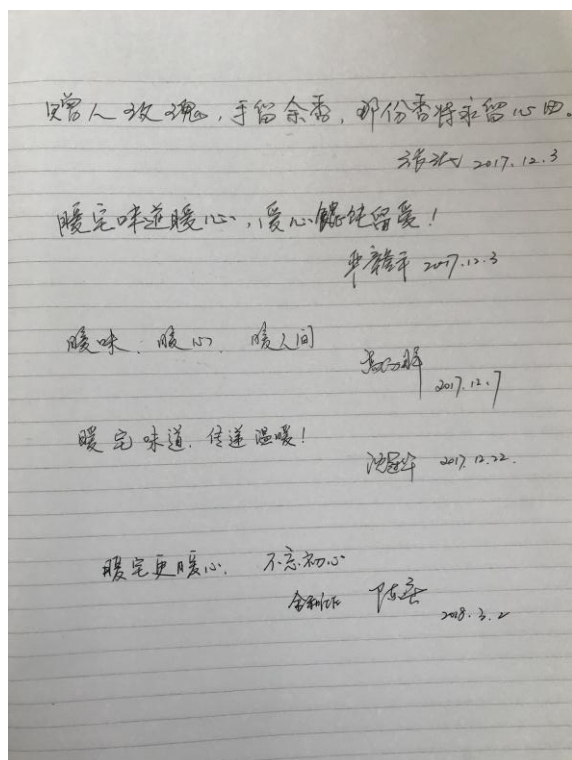 赠人玫瑰，手留余香，那份香将永留心田。
2017.12.3
暖宅味道暖心，爱心馄饨留爱！
2017.12.3
暖味、暖心、暖人间
2017.12.7
暖宅味道，传递温暖！
沈冠华 2017.12.22.
暖宅更暖心、不忘初心
2018.3.2